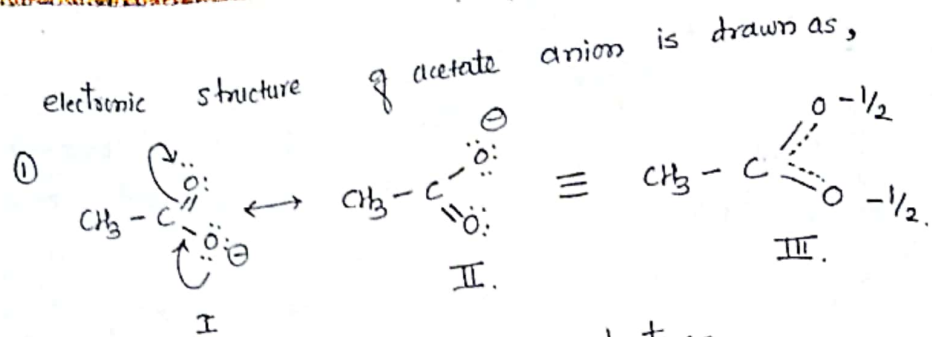 electronic structure of acetate anion is drawn as,
①
CH₃ - C O: O: ⊖ ↔ CH₃ - C O: ⊖ O: ≡ CH₃ - C O -1/2 O -1/2.
I II. III.